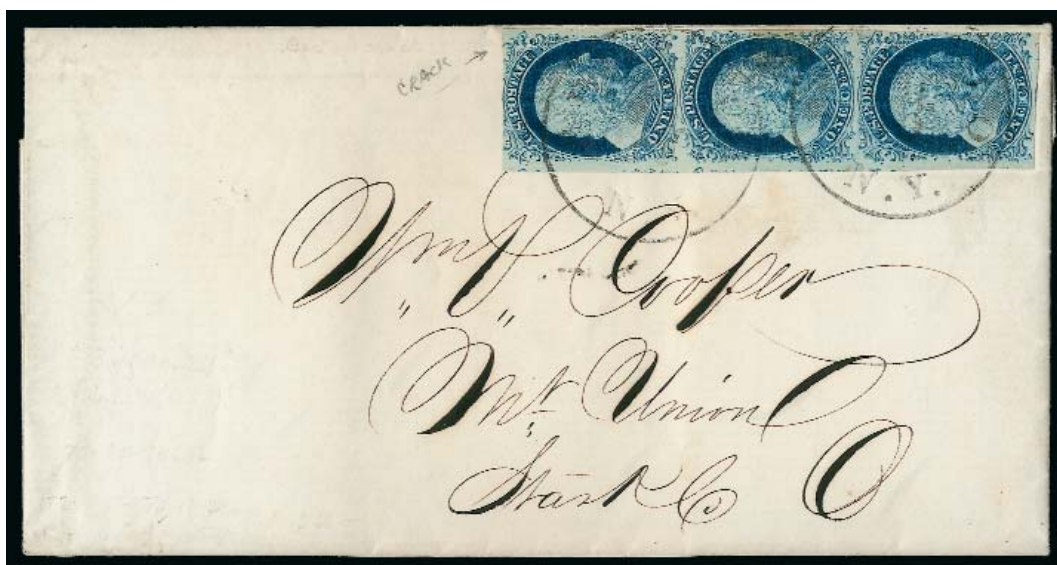 CRACK
U.S. POSTAGE ONE CENT
U.S. POSTAGE ONE CENT
U.S. POSTAGE ONE CENT
N.Y.
Wm. V. Cooper
Mt. Union
Stark Co O